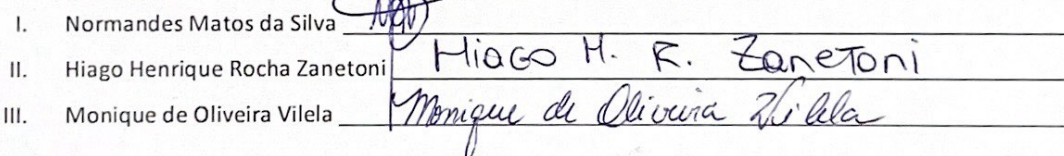 I. Normandes Matos da Silva
II. Hiago Henrique Rocha Zanetoni Hiago H. R. Zanetoni
III. Monique de Oliveira Vilela Monique de Oliveira Vilela